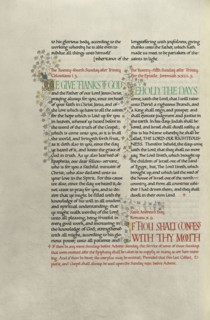 to his glorious body, according to the
working whereby he is able even to
subdue all things unto himself.
The Twenty-fourth Sunday after Trinity.
Colossians 1. 3.
WE GIVE THANKS TO GOD
and the Father of our Lord Jesus Christ,
praying always for you, since we heard
of your faith in Christ Jesus, and of
the love which ye have to all the saints;
for the hope which is laid up for you
in heaven, whereof ye heard before in
the word of the truth of the Gospel;
which is come unto you, as it is in all
the world, and bringeth forth fruit, as
it doth also in you, since the day
ye heard of it, and knew the grace of
God in truth. As ye also learned of
Epaphras, our dear fellow-servant,
who is for you a faithful minister of
Christ, who also declared unto us
your love in the Spirit. For this cause
we also, since the day we heard it, do
not cease to pray for you, and to de-
sire that ye might be filled with the
knowledge of his will in all wisdom
and spiritual understanding: that
ye might walk worthy of the Lord,
unto all pleasing, being fruitful in
every good work, and increasing in
the knowledge of God; strengthened
with all might, according to his glo-
rious power, unto all patience and
longsuffering with joyfulness, giving
thanks unto the Father, which hath
made us meet to be partakers of the
inheritance of the saints in light.
The Twenty-fifth Sunday after Trinity.
For the Epistle. Jeremiah XXIII. 5.
BEHOLD, THE DAYS
come, saith the Lord, that I will raise
unto David a righteous Branch, and
a King shall reign, and prosper, and
shall execute judgment and justice in
the earth. In his days Judah shall be
saved, and Israel shall dwell safely; and
this is his Name whereby he shall be
called, THE LORD OUR RIGHTEOUS-
NESS. Therefore behold, the days come,
saith the Lord, that they shall no more
say, The Lord liveth, which brought up
the children of Israel out of the land
of Egypt; but, The Lord liveth, which
brought up, and which led the seed of
the house of Israel out of the north-
country, and from all countries whi-
ther I had driven them; and they shall
dwell in their own land.
Saint Andrew's Day.
Romans X. 9.
IF THOU SHALT CONFESS
WITH THY MOUTH